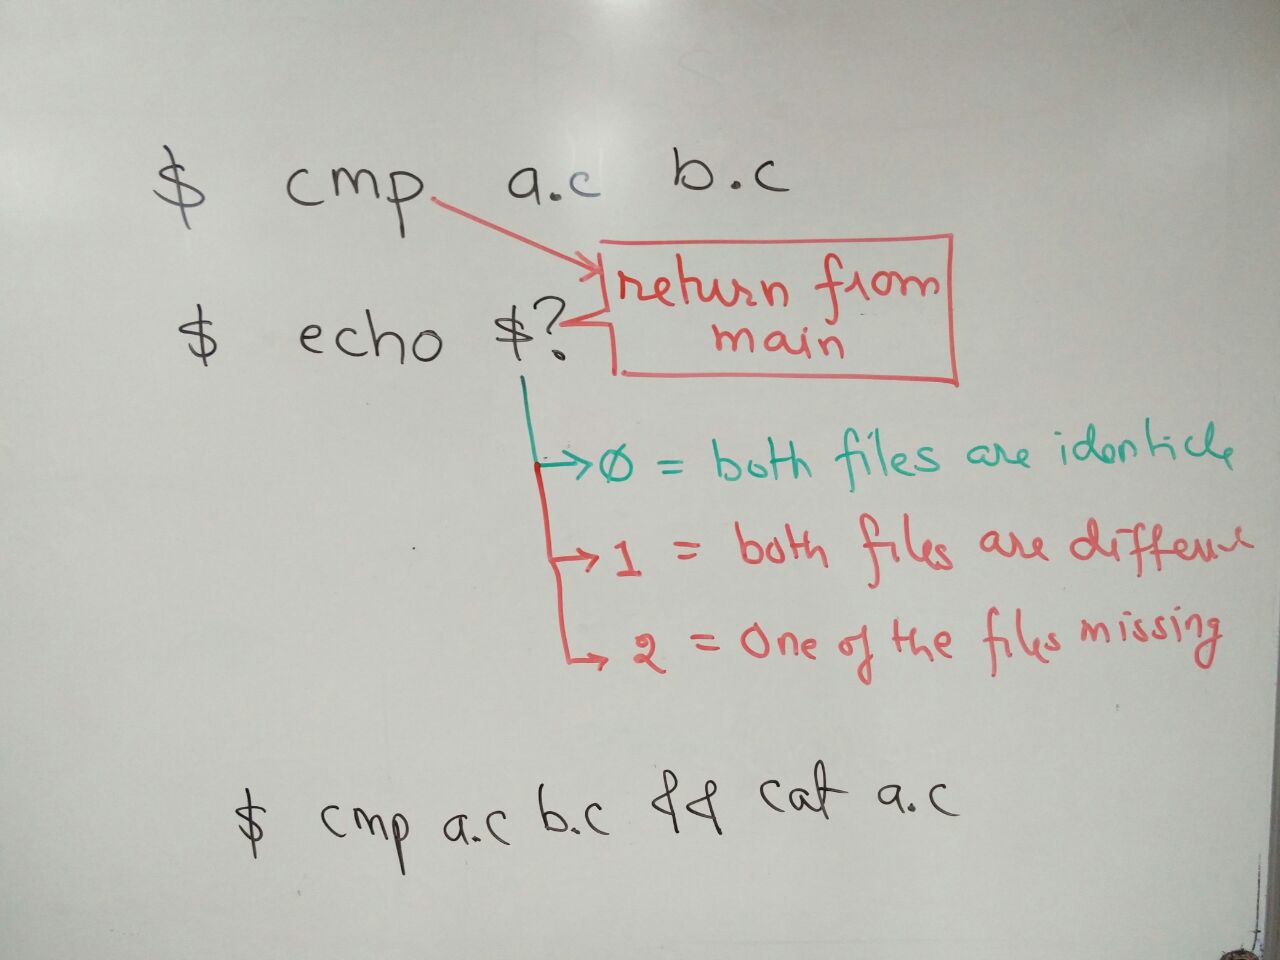 $ cmp a.c b.c
return from
main
$ echo $?
0 = both files are identicle
1 = both files are different
2 = One of the files missing
$ cmp a.c b.c && cat a.c